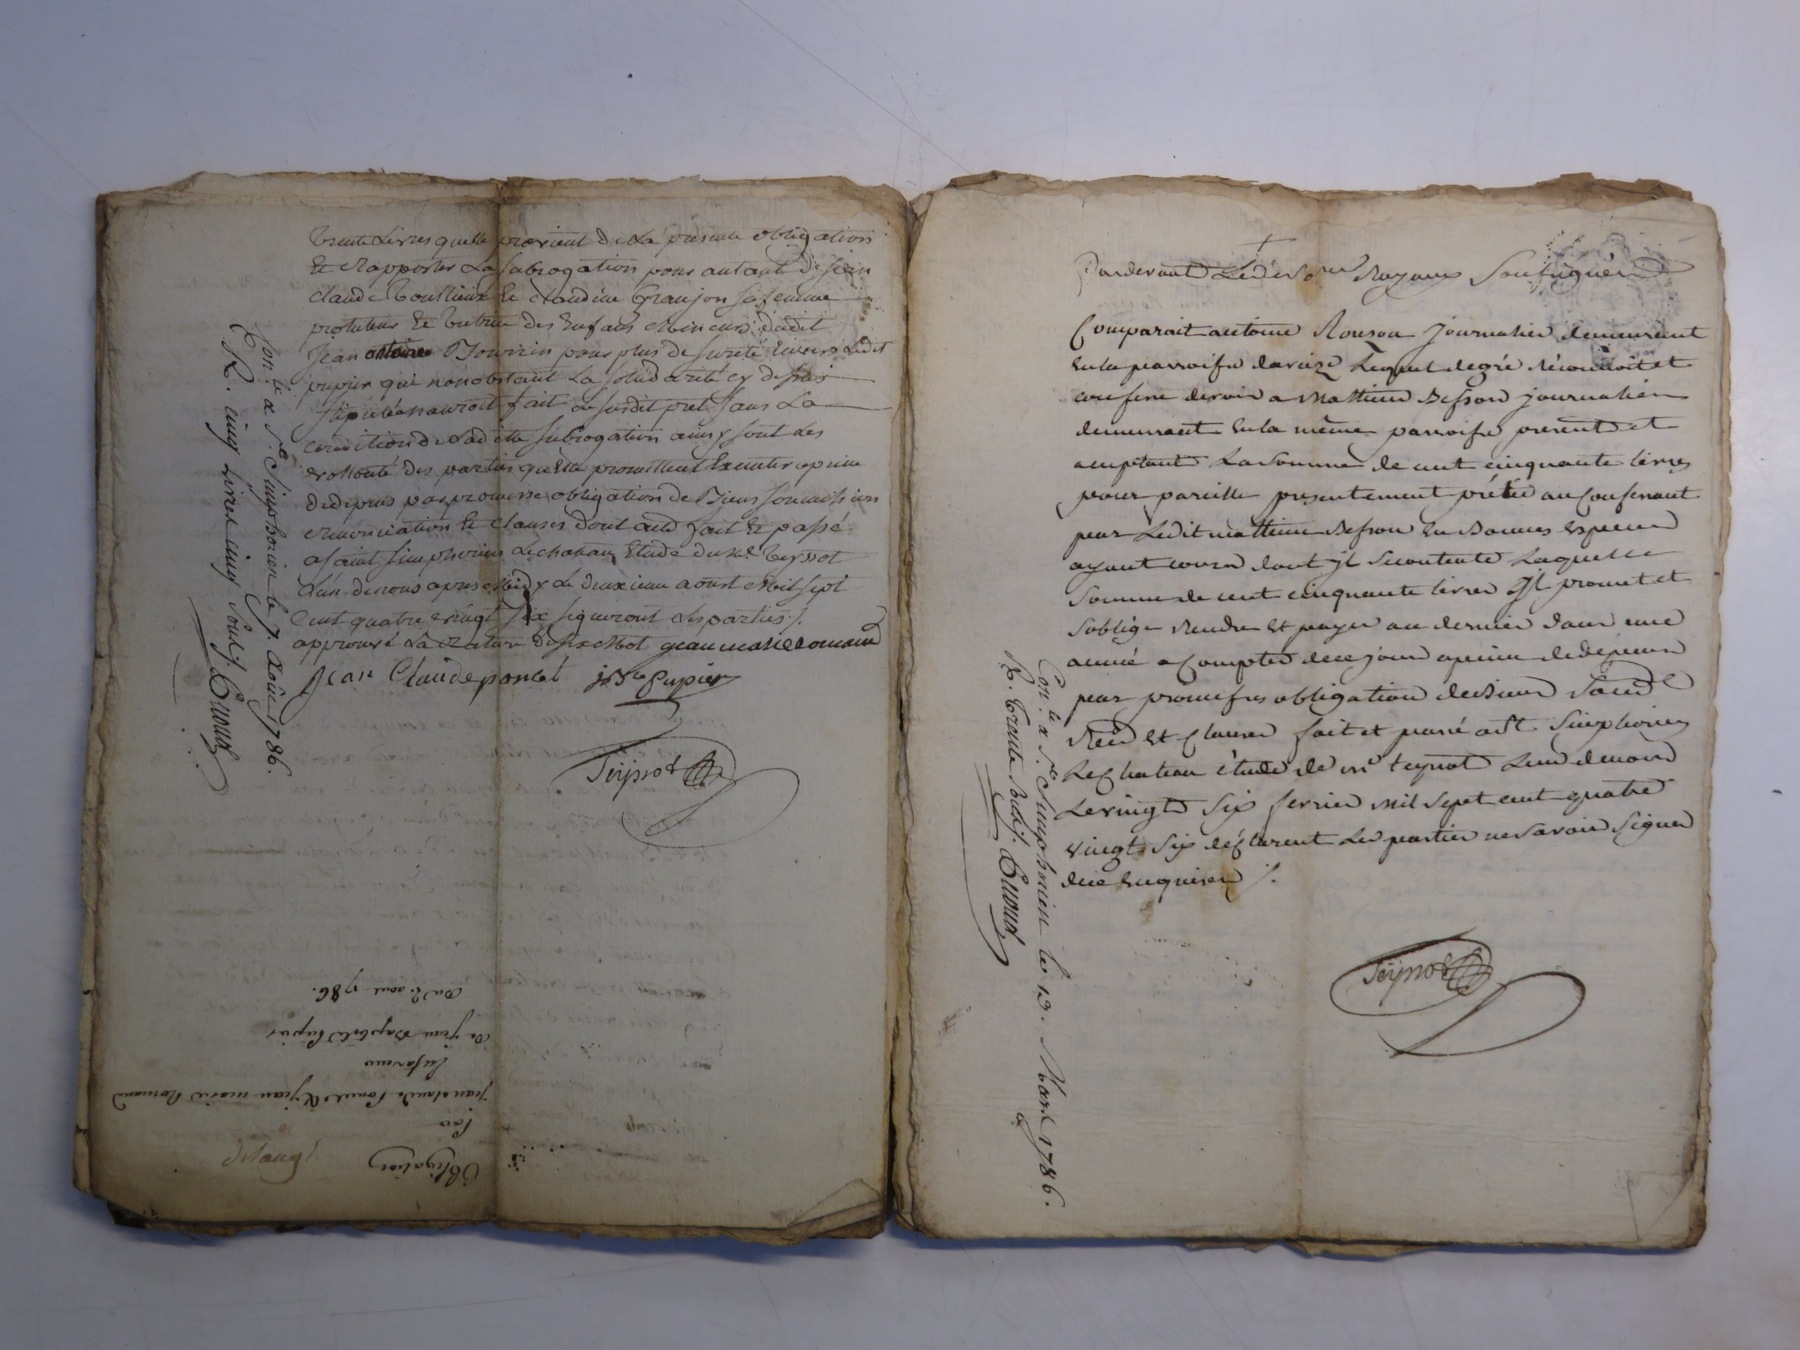 trente Livres quelle provient de La presente obligation
Et Rapporter La subrogation pour autant de jean
claude toullieux Et claudine Granjon sa femme
protuteur Et tutrice des Enfans Mineurs dudit
jean antoine pour plus de sureté Ledit
pupier qui nonobstant La solidarité cy dessus
fait Le susdit pret sans La
condition de Ladite subrogation ainsy sont Les
volonté des parties quelle promettent Executer a peine
de depens par promesse obligation de Biens soumissions
renonciation Et clauses dont acte fait Et passé
a saint simphorien Lechateau Etude du Me teyssot
L'un de nous apres Midy Le deuxieme aoust Mil sept
Cent quatre vingt six signeront Les parties ./.
approuvé La rature de six Mot jean marie Romand
Jean Claude poncet jBte Pupier
Teyssot
Con.lé a St. Simphorien le 7 Août 1786.
R. cinq livres cinq sols ./.
Obligation
Par
jean claude Poncet & jean marie Romand
En faveur
De jean Baptiste Pupier
Du 2. aout 1786.
Pardevant Les Nore Royaux Soussignés
Comparait antoine journalier demeurant
en la parroisse Lequel de gré reconnoit et
confesse devoir a Matthieu Besson journalier
demeurant en la même parroisse present et
acceptant La somme de cent cinquante livres
pour pareille presentement prétée au Confessant
par Ledit matthieu Besson En Bonnes especes
ayant cours dont jl se contente Laquelle
somme de cent cinquante livres Jl promet et
s'oblige rendre et payer au dernier dans une
année a Compter de ce jour a peine de depens
par promesses obligation de Biens Soumd
Ren et Clauses fait et passé a St Simphorien
Le Chateau étude de me teyssot L'un de nous
Le vingt six fevrier mil sept cent quatre
vingt six déclarent Les parties ne savoir signer
de ce Enquises ./.
Teyssot
Con.lé a St. Simphorien le 13. Mars 1786.
R. trente sols ./.